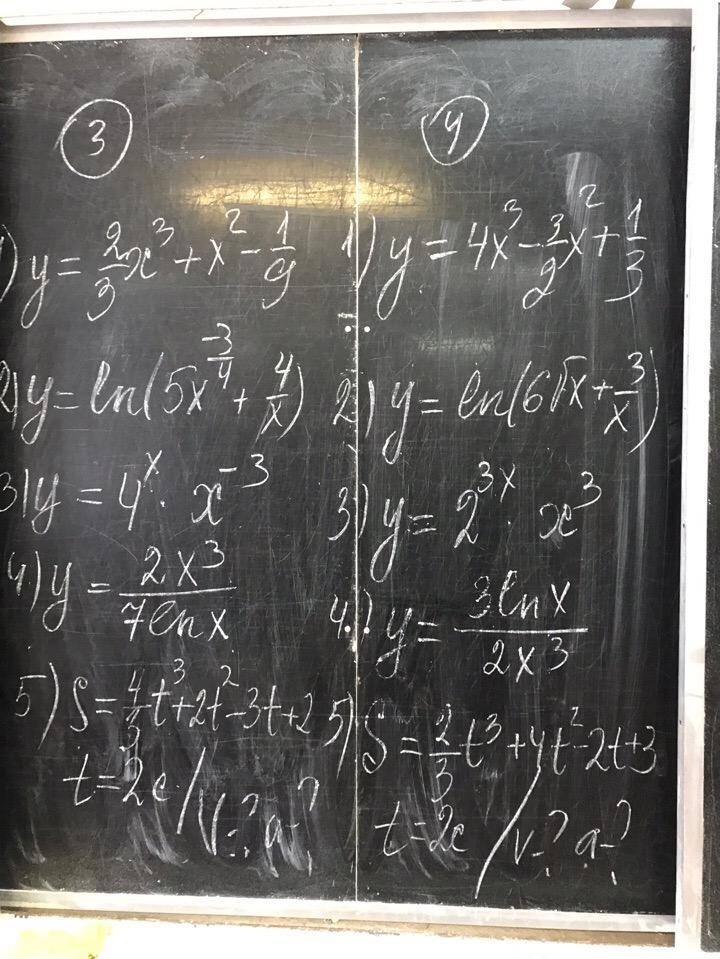 3
1) y = 2/3 x³ + x² - 1/9
2) y = ln(5x^(-3/4) + 4/x)
3) y = 4^x · x^(-3)
4) y = 2x³/7lnx
5) S = 4/3 t³ + 2t² - 3t + 2
t = 2c / V-? a-?
4
1) y = 4x³ - 3/2 x² + 1/3
2) y = ln(6√x + 3/x)
3) y = 2^(3x) · x³
4.) y = 3lnx/2x³
5) S = 2/3 t³ + 4t² - 2t + 3
t = 2c / V-? a-?